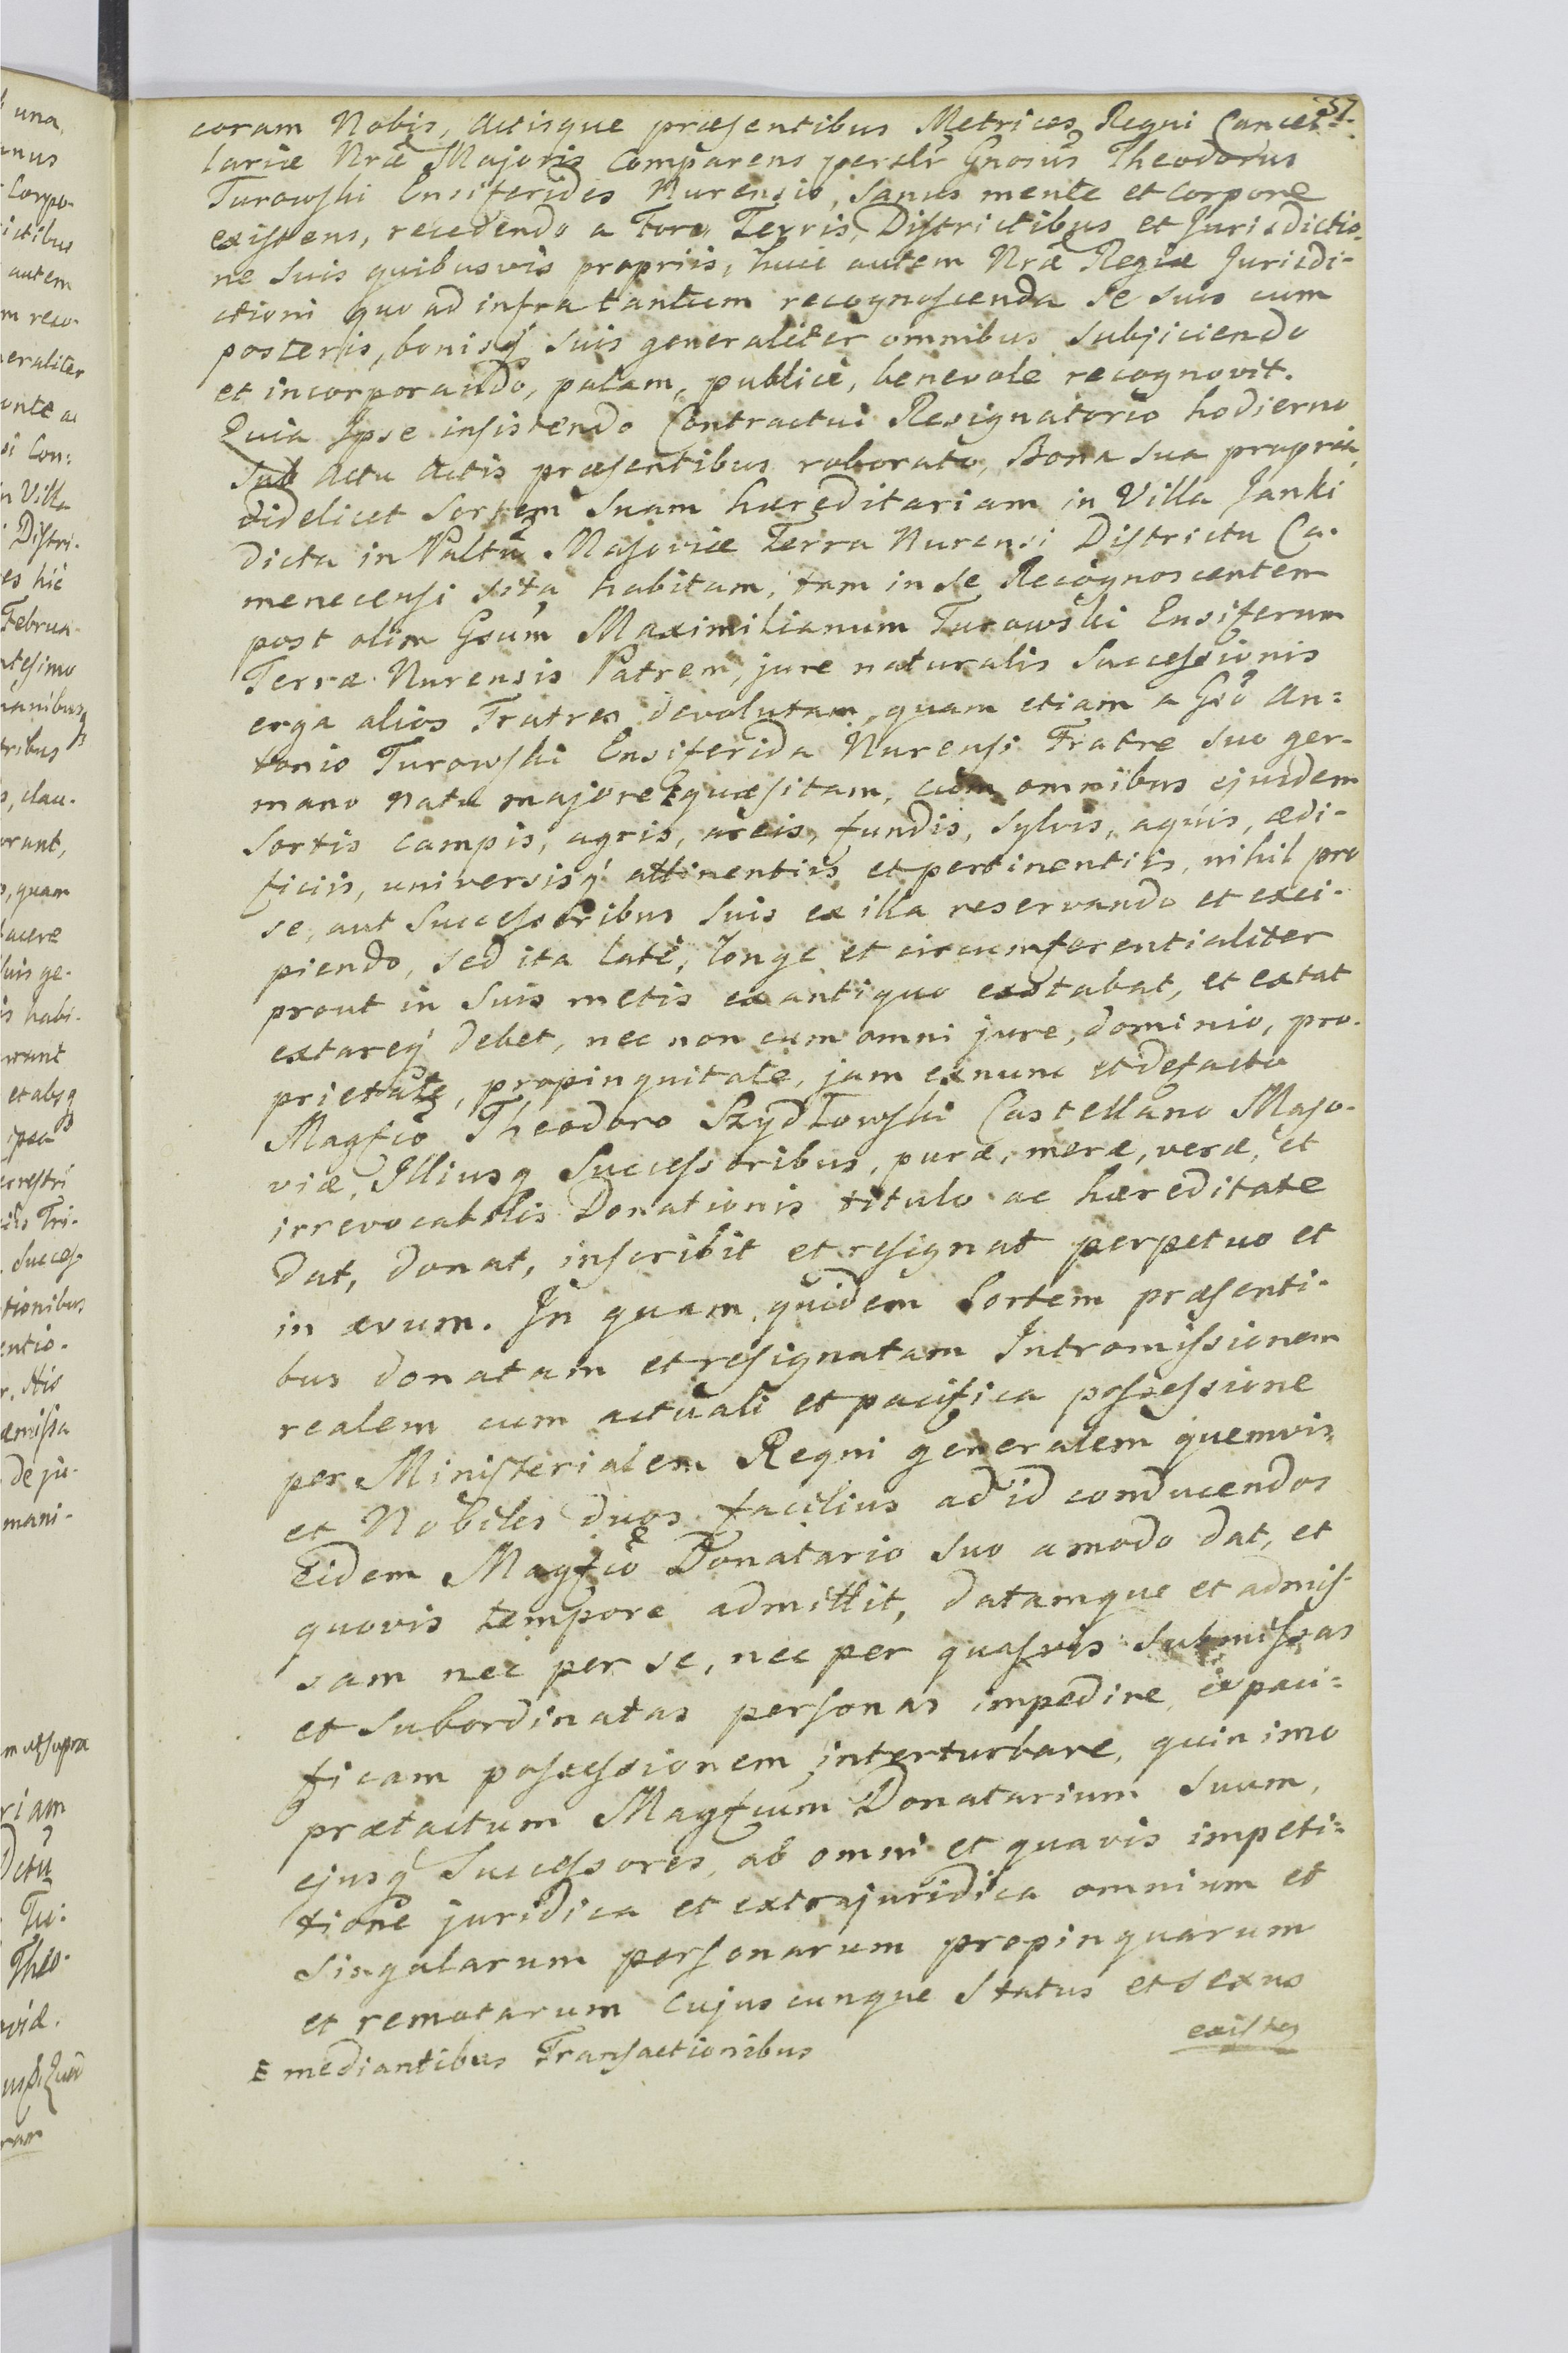 57.
coram Nobis, Actisque præsentibus Metrices Regni Cancel-
lariæ Nræ Majoris Comparens persłr Gnosus Theodorus
Turowski Ensiferides Nurensis, sanus mente et corpore
existens, recedendo a Foro, Terris, Districtibus et Jurisdictio-
ne suis quibusvis propriis, huic autem Nræ Regiæ Jurisdi-
ctioni quo ad infra tantum recognoscenda se suis cum
posteris, bonisq suis generaliter omnibus subjiciendo
et incorporando, palam, publicè, benevole recognovit.
Quia Ipse insistendo Contractui Resignatorio hodierno
sub Actu Actis præsentibus roborato, Bona sua propria,
videlicet Sortem Suam hæreditariam in Villa Janki
dicta in Paltũ Masoviæ Terra Nurensi Districtu Ca-
menecensi sita habitam, tam in se Recognoscentem
post olim Gsũm Maximilianum Turowski Ensiferum
Terræ Nurensis Patrem, jure naturalis Successionis
erga alios Fratres devolutam, quam etiam a Gsõ An=
tonio Turowski Ensiferida Nurensi Fratre suo ger-
mano natu majore E quæsitam, cum omnibus ejusdem
Sortis campis, agris, areis, fundis, sylvis, aquis, ædi-
ficiis, universisq attinentiis et pertinentiis, nihil pro
se, aut Successoribus suis ex illa reservando et exci-
piendo, sed ita latè, longe et circumferentialiter
prout in suis metis ex antiquo exstabat, et extat
extareq debet, nec non cum omni jure, dominio, pro-
prietate, propinquitate, jam exnunc et de facto
Magfcõ Theodoro Szydłowski Castellano Maso-
viæ, Illiusq Successoribus, puræ, meræ, veræ, et
irrevocabilis Donationis titulo ac hæreditate
dat, donat, inscribit et resignat perpetuo et
in ævum. In quam quidem Sortem præsenti-
bus donatam et resignatam Intromissionem
realem cum actuali et pacifica possessione
per Ministerialem Regni generalem quemvis,
et Nobiles duos facilius ad id conducendos
Eidem Magfcõ Donatario suo amodo dat, et
quovis tempore admittit, datamque et admis-
sam nec per se, nec per quasvis submissas
et subordinatas personas impedire, expaci=
ficam possessionem interturbare, quin imo
prætactum Magfcum Donatarium suum,
ejusq Successores, ab omni et quavis impeti=
tione juridica et extrajuridica omnium et
singularum personarum propinquarum
et remotarum cujuscunque status et sexus
existen
E mediantibus Transactionibus